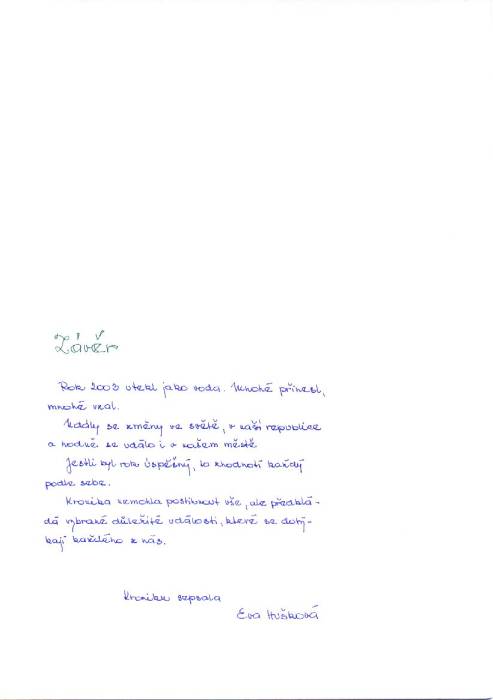 Závěr
Rok 2003 utekl jako voda. Mnohé přinesl,
mnohé vzal.
Udály se změny ve světě, v naší republice
a hodně se událo i v našem městě
Jestli byl rok úspěšný, to zhodnotí každý
podle sebe.
Kronika nemohla postihnout vše, ale předklá-
dá vybrané důležité události, které se dotý-
kají každého z nás.
Kroniku sepsala
Eva Hušková